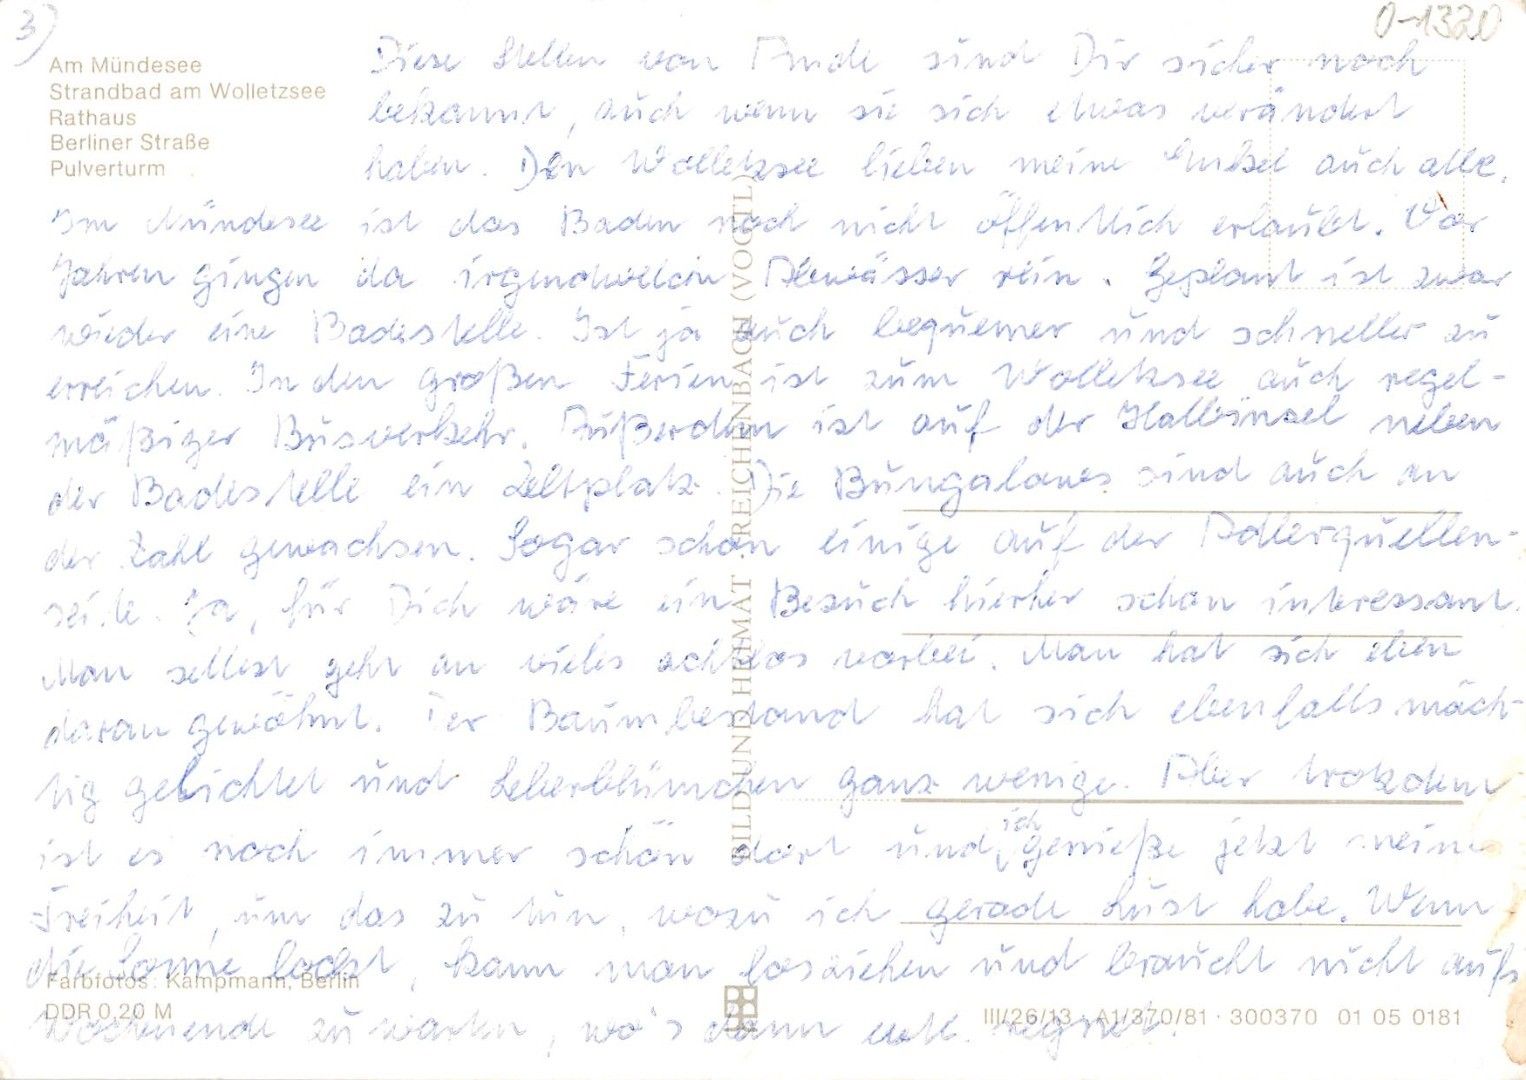 3)
0-1320
Am Mündesee
Strandbad am Wolletzsee
Rathaus
Berliner Straße
Pulverturm
Diese Stellen von Ang'de sind Dir sicher noch
bekannt, auch wenn sie sich etwas verändert
haben. Den Wolletzsee lieben meine Enkel auch alle.
Im Mündesee ist das Baden noch nicht öffentlich erlaubt. Vor
Jahren gingen da irgendwelche Abwässer rein. Geplant ist zwar
wieder eine Badestelle. Ist ja auch bequemer und schneller zu
erreichen. In den großen Ferien ist zum Wolletzsee auch regel-
mäßiger Busverkehr. Außerdem ist auf der Halbinsel neben
der Badestelle ein Zeltplatz. Die Bungalows sind auch an
der Zahl gewachsen. Sogar schon einige auf der Adlerquellen-
seite. Ja, für Dich wäre ein Besuch hierher schon interessant.
Man selbst geht an vieles achtlos vorbei. Man hat sich eben
daran gewöhnt. Der Baumbestand hat sich ebenfalls mäch-
tig gelichtet und Leberblümchen ganz wenige. Aber trotzdem
ist es noch immer schön dort und ich genieße jetzt meine
Freiheit, um das zu tun, wozu ich gerade Lust habe. Wenn
die Sonne lockt, kann man losziehen und braucht nicht aufs
Wochenende zu warten, wo's dann evtl. regnet.
BILD UND HEIMAT REICHENBACH (VOGTL)
Farbfotos: Kampmann, Berlin
DDR 0,20 M
III/26/13 A1/370/81 · 300370 01 05 0181